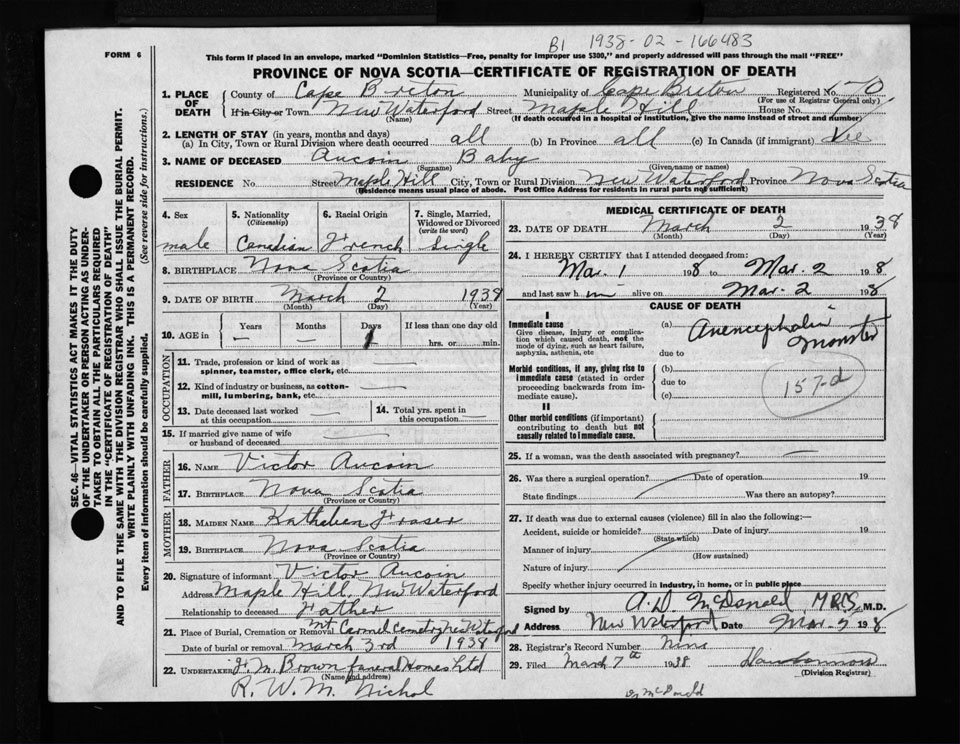 B1 1938-02-166483
FORM 6
This form if placed in an envelope, marked "Dominion Statistics—Free, penalty for improper use $300," and properly addressed will pass through the mail "FREE"
PROVINCE OF NOVA SCOTIA—CERTIFICATE OF REGISTRATION OF DEATH
1. PLACE OF DEATH
County of Cape Breton Municipality of Cape Breton Registered No. 70
(For use of Registrar General only)
If in City or Town New Waterford Street Maple Hill House No.
(Name) (If death occurred in a hospital or institution, give the name instead of street and number)
2. LENGTH OF STAY (in years, months and days)
(a) In City, Town or Rural Division where death occurred all (b) In Province all (c) In Canada (if immigrant)
3. NAME OF DECEASED Aucoin Baby
(Surname) (Given name or names)
RESIDENCE No. Street Maple Hill City, Town or Rural Division New Waterford Province Nova Scotia
(Residence means usual place of abode. Post Office Address for residents in rural parts not sufficient)
4. Sex
male
5. Nationality
(Citizenship)
Canadian
6. Racial Origin
French
7. Single, Married, Widowed or Divorced
(write the word)
Single
8. BIRTHPLACE Nova Scotia
(Province or Country)
9. DATE OF BIRTH March 2 1938
(Month) (Day) (Year)
10. AGE in Years Months Days If less than one day old
— — 1 hrs. or min.
OCCUPATION
11. Trade, profession or kind of work as spinner, teamster, office clerk, etc.
12. Kind of industry or business, as cotton-mill, lumbering, bank, etc.
13. Date deceased last worked at this occupation
14. Total yrs. spent in this occupation
15. If married give name of wife or husband of deceased
FATHER
16. NAME Victor Aucoin
17. BIRTHPLACE Nova Scotia
(Province or Country)
MOTHER
18. MAIDEN NAME Kathleen Fraser
19. BIRTHPLACE Nova Scotia
(Province or Country)
20. Signature of informant Victor Aucoin
Address Maple Hill, New Waterford
Relationship to deceased Father
21. Place of Burial, Cremation or Removal Mt Carmel Cemetry New Waterford
Date of burial or removal March 3rd 1938
22. UNDERTAKER F. M. Brown funeral Homes Ltd
(Name and address)
R. W. M. Nichol
MEDICAL CERTIFICATE OF DEATH
23. DATE OF DEATH March 2 1938
(Month) (Day) (Year)
24. I HEREBY CERTIFY that I attended deceased from:
Mar. 1 1938 to Mar. 2 1938
and last saw him alive on Mar. 2 1938
CAUSE OF DEATH
I
Immediate cause
Give disease, injury or complication which caused death, not the mode of dying, such as heart failure, asphyxia, asthenia, etc
(a) Anencephalic Monster
due to
Morbid conditions, if any, giving rise to immediate cause (stated in order proceeding backwards from immediate cause).
(b)
due to
(c)
157-d
II
Other morbid conditions (if important) contributing to death but not causally related to immediate cause.
25. If a woman, was the death associated with pregnancy? —
26. Was there a surgical operation? Date of operation 19
State findings Was there an autopsy?
27. If death was due to external causes (violence) fill in also the following:—
Accident, suicide or homicide? Date of injury 19
(State which)
Manner of injury
(How sustained)
Nature of injury
Specify whether injury occurred in industry, in home, or in public place
Signed by A. D. McDonald, MRCS, M.D.
Address New Waterford Date Mar-5 1938
28. Registrar's Record Number Nine
29. Filed March 7th 1938
(Division Registrar)
D McDonald
SEC. 46—VITAL STATISTICS ACT MAKES IT THE DUTY
OF THE UNDERTAKER OR PERSON ACTING AS UNDER-
TAKER TO OBTAIN ALL THE PARTICULARS REQUIRED
IN THE "CERTIFICATE OF REGISTRATION OF DEATH"
AND TO FILE THE SAME WITH THE DIVISION REGISTRAR WHO SHALL ISSUE THE BURIAL PERMIT.
WRITE PLAINLY WITH UNFADING INK. THIS IS A PERMANENT RECORD.
Every item of information should be carefully supplied. (See reverse side for instructions.)